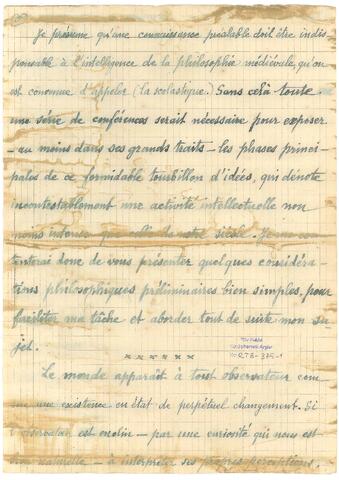 Je présume qu'une connaissance préalable doit être indis
pensable à l'intelligence de la philosophie médiévale, qu'on
est convenue d'appeler (la scolastique.) Sans celà toute
une série de conférences serait nécessaire pour exposer
- au moins dans ses grands traits - les phases princi-
pales de ce formidable tourbillon d'idées, qui dénote
incontestablement une activité intellectuelle non
moins intense que celle de notre siècle. Je me con
tenterai donc de vous présenter quelques considéra-
tions philosophiques préliminaires bien simples, pour
faciliter ma tâche et aborder tout de suite mon su
jet.
××××××
278-375-1
Le monde apparaît à tout observateur com
me une existence en état de perpétuel changement. Si
l'observateur est enclin - par une curiosité qui nous est
naturelle - à interpréter ses propres perceptions,